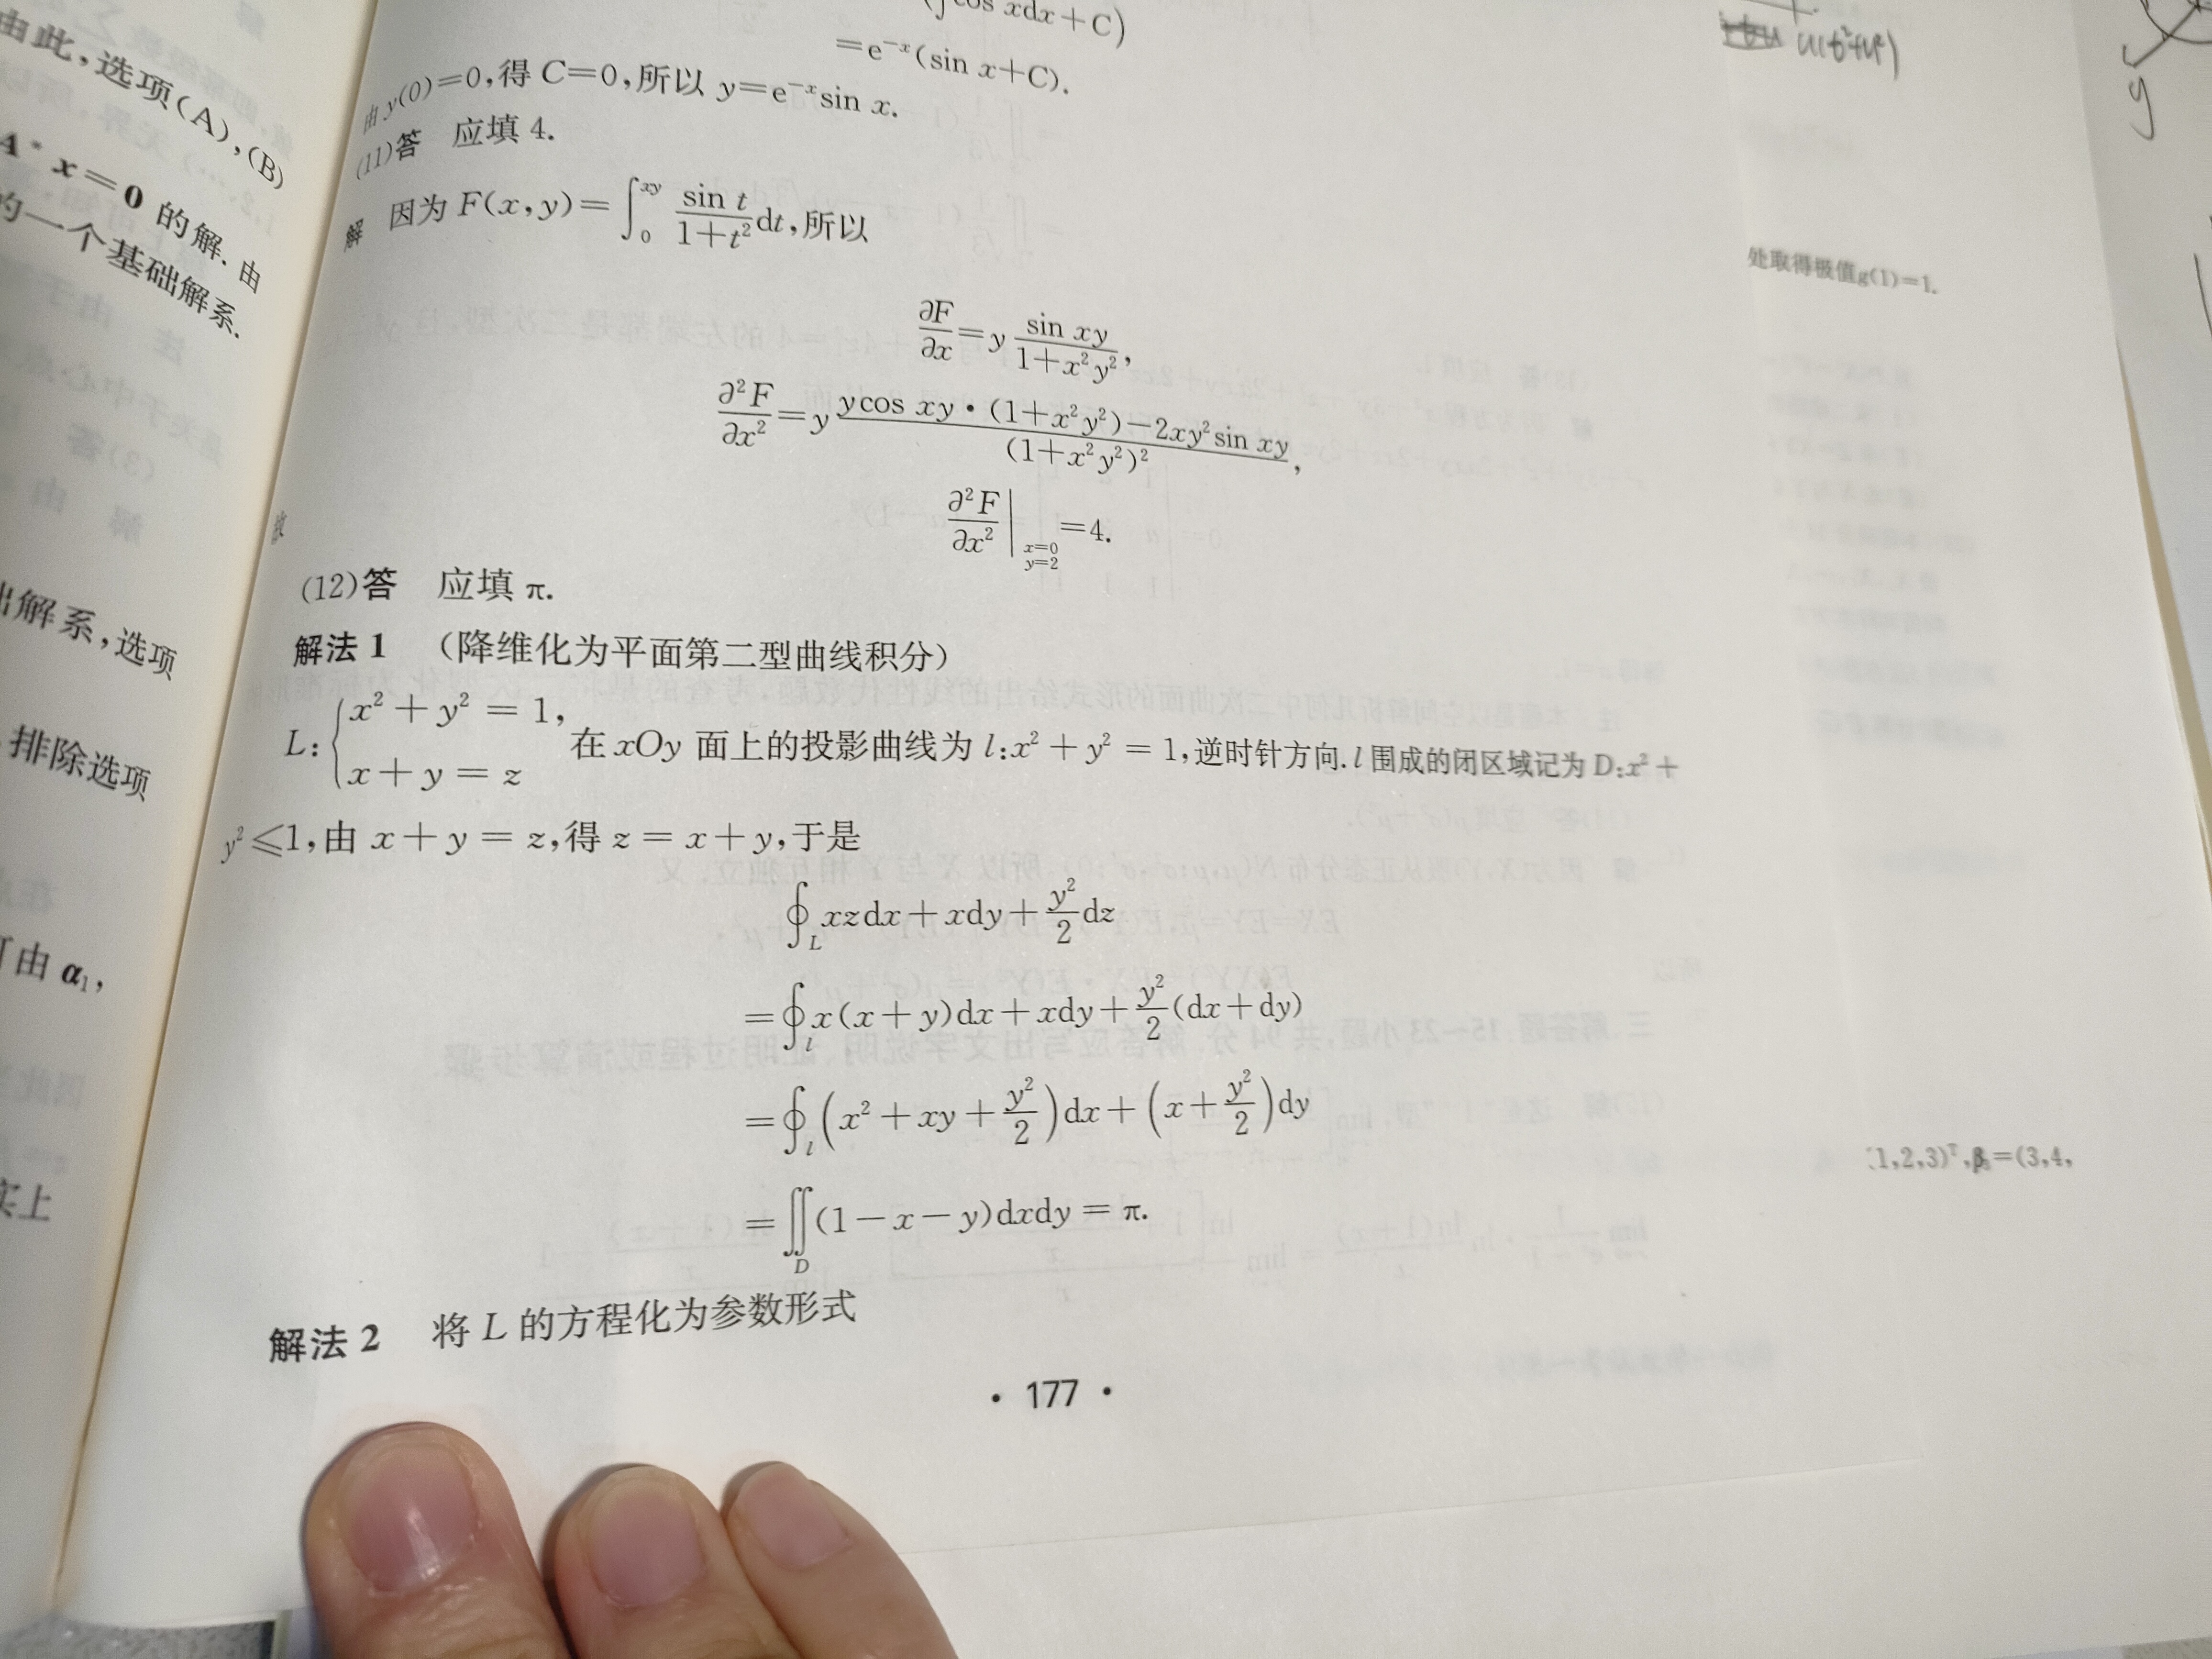 由此,选项(A),(B)
A* x=0 的解. 由
的一个基础解系.
出解系,选项
排除选项
可由 α₁,
实上
cos xdx+C)
=e⁻ˣ(sin x+C).
由 y(0)=0,得 C=0,所以 y=e⁻ˣsin x.
(11)答 应填 4.
解 因为 F(x,y)=∫₀^{xy} \frac{sin t}{1+t²}dt,所以
\frac{∂F}{∂x}=y\frac{sin xy}{1+x²y²},
\frac{∂²F}{∂x²}=y\frac{ycos xy·(1+x²y²)-2xy²sin xy}{(1+x²y²)²},
故
\frac{∂²F}{∂x²}|_{x=0, y=2}=4.
(12)答 应填 π.
解法 1 (降维化为平面第二型曲线积分)
L:{x²+y²=1, x+y=z 在 xOy 面上的投影曲线为 l:x²+y²=1,逆时针方向.l 围成的闭区域记为 D:x²+
y²≤1,由 x+y=z,得 z=x+y,于是
∮_L xzdx+xdy+\frac{y²}{2}dz
=∮_l x(x+y)dx+xdy+\frac{y²}{2}(dx+dy)
=∮_l (x²+xy+\frac{y²}{2})dx+(x+\frac{y²}{2})dy
=∬_D (1-x-y)dxdy=π.
解法 2 将 L 的方程化为参数形式
· 177 ·
u(t²+u²)
y
处取得极值g(1)=1.
1,2,3)ᵀ,β₃=(3,4,